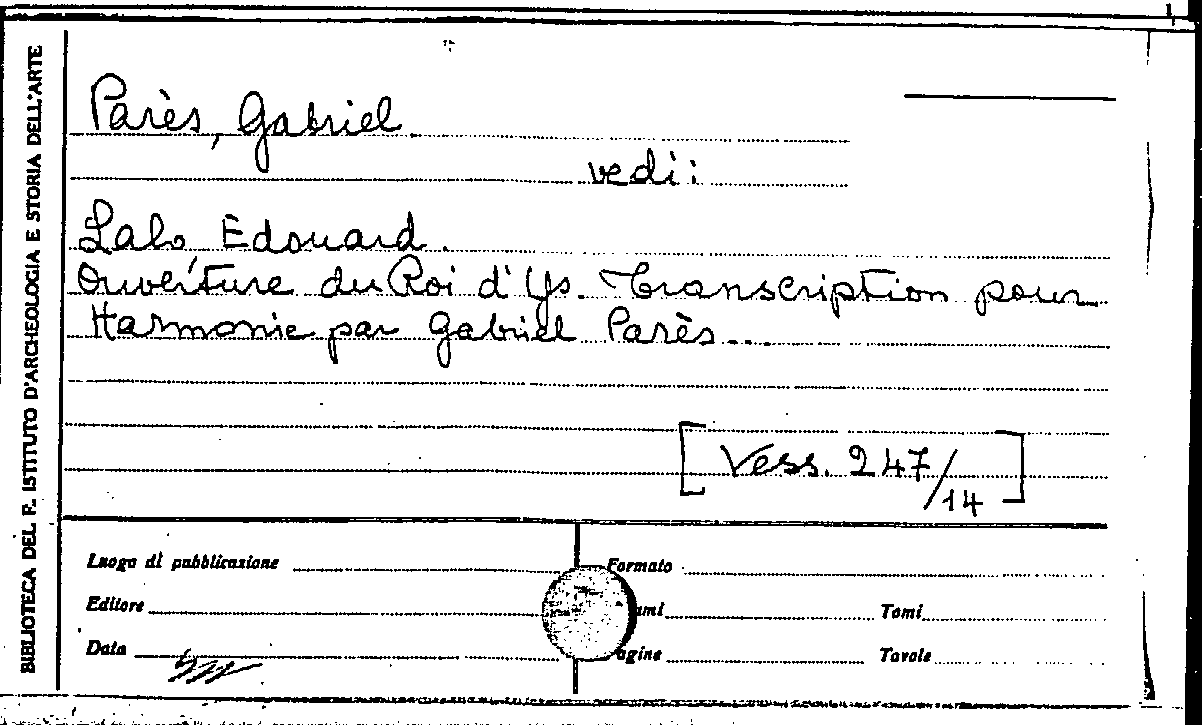 1
BIBLIOTECA DEL R. ISTITUTO D'ARCHEOLOGIA E STORIA DELL'ARTE
Parès, Gabriel
vedi:
Lalo, Edouard.
Ouverture du Roi d'Ys. Transcription pour
Harmonie par Gabriel Parès...
[Vess. 247/14]
Luogo di pubblicazione
Formato
Editore
umi
Tomi
Data
agine
Tavole